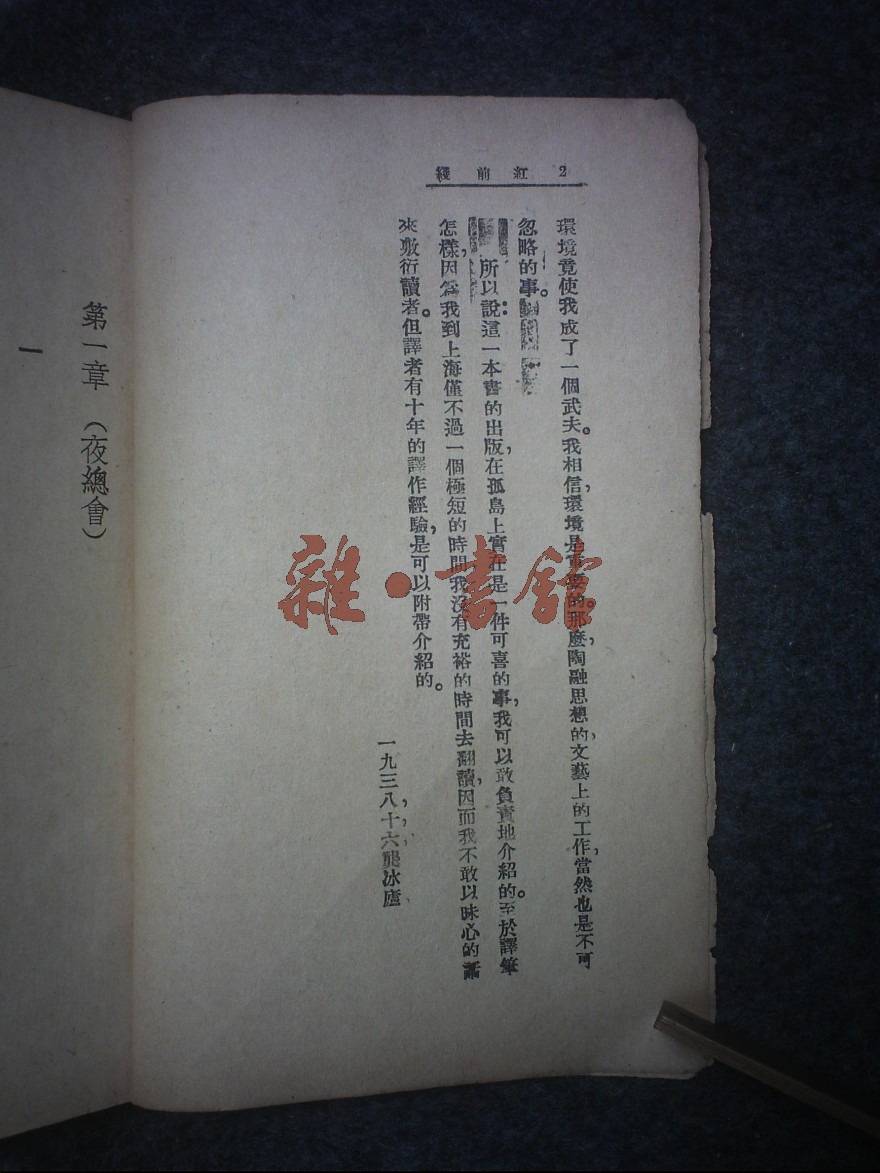 2 紅前綫
環境竟使我成了一個武夫。我相信,環境是重要的。那麼,陶融思想的文藝上的工作,當然也是不可
忽略的事。
所以說:這一本書的出版,在孤島上實在是一件可喜的事,我可以敢負責地介紹的。至於譯筆
怎樣,因爲我到上海僅不過一個極短的時間,我沒有充裕的時間去翻讀,因而我不敢以昧心的話
來敷衍讀者。但譯者有十年的譯作經驗,是可以附帶介紹的。
一九三八,十,六,龔冰廬
第一章(夜總會)
一
雜·書館